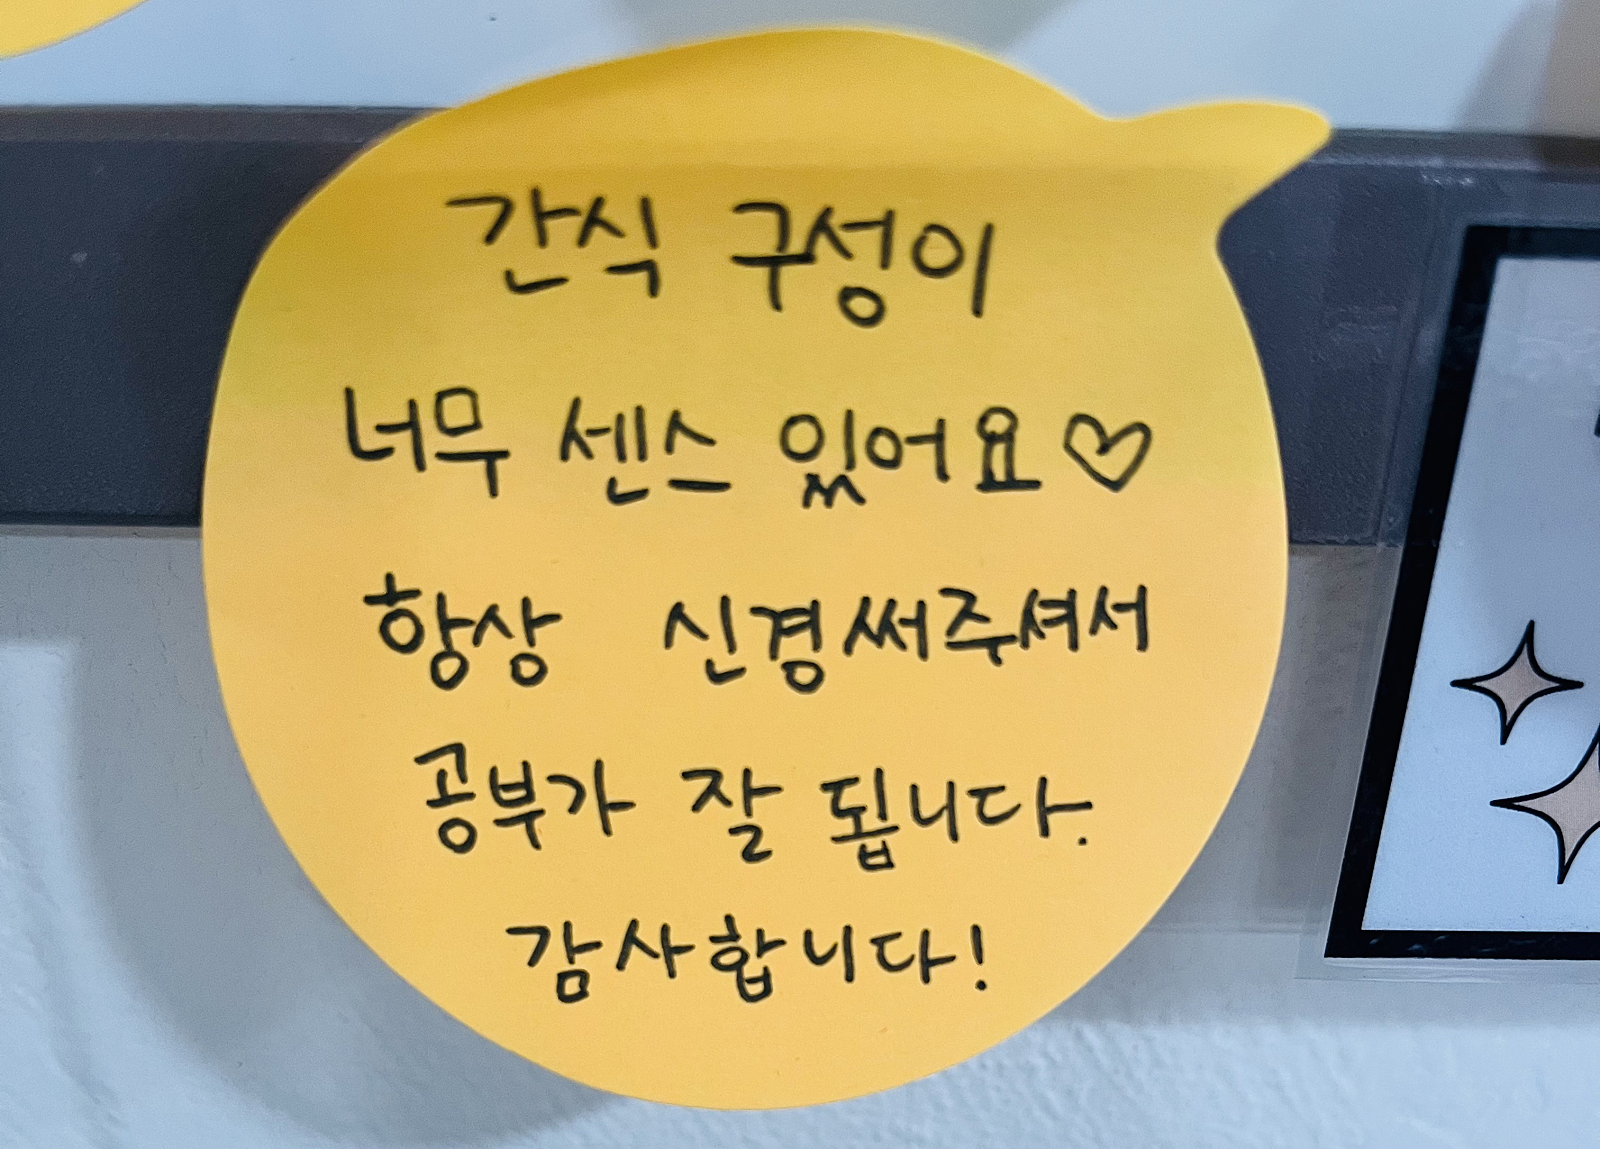 간식 구성이
너무 센스 있어요♡
항상 신경써주셔서
공부가 잘 됩니다.
감사합니다!